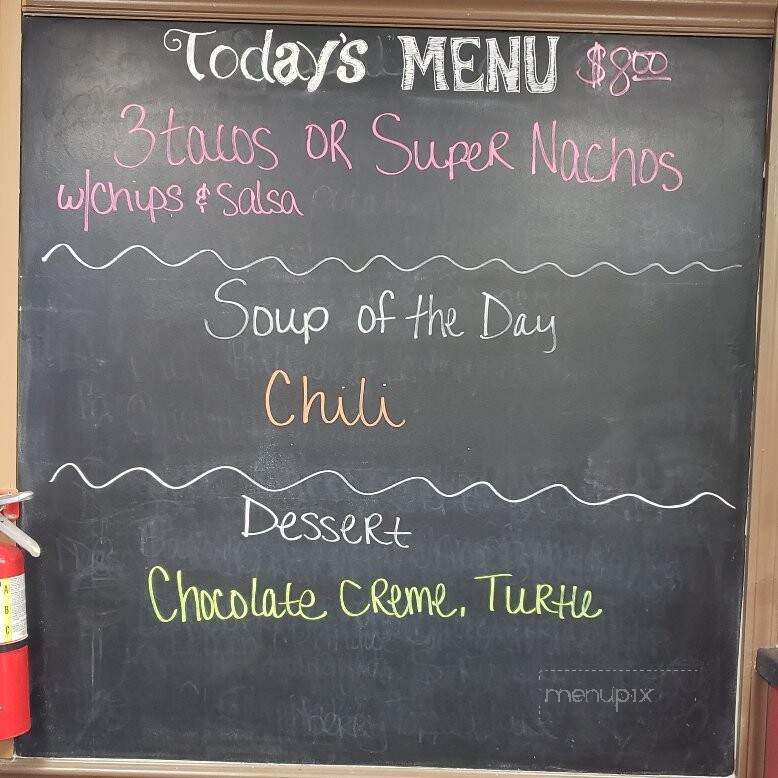 Today's MENU $8.00
3 tacos OR Super Nachos
w/chips & Salsa
Soup of the Day
Chili
Dessert
Chocolate Creme, Turtle
A
B
C
menupix